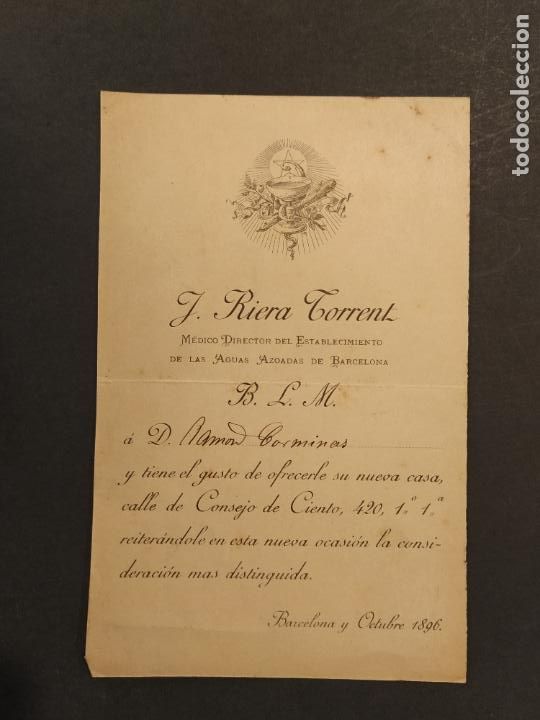 J. Riera Torrent
MÉDICO DIRECTOR DEL ESTABLECIMIENTO
DE LAS AGUAS AZOADAS DE BARCELONA
B. L. M.
á D. Ramon Corminas
y tiene el gusto de ofrecerle su nueva casa,
calle de Consejo de Ciento, 420, 1.º 1.ª
reiterándole en esta nueva ocasión la consi-
deración mas distinguida.
Barcelona y Octubre 1896.
todocoleccion